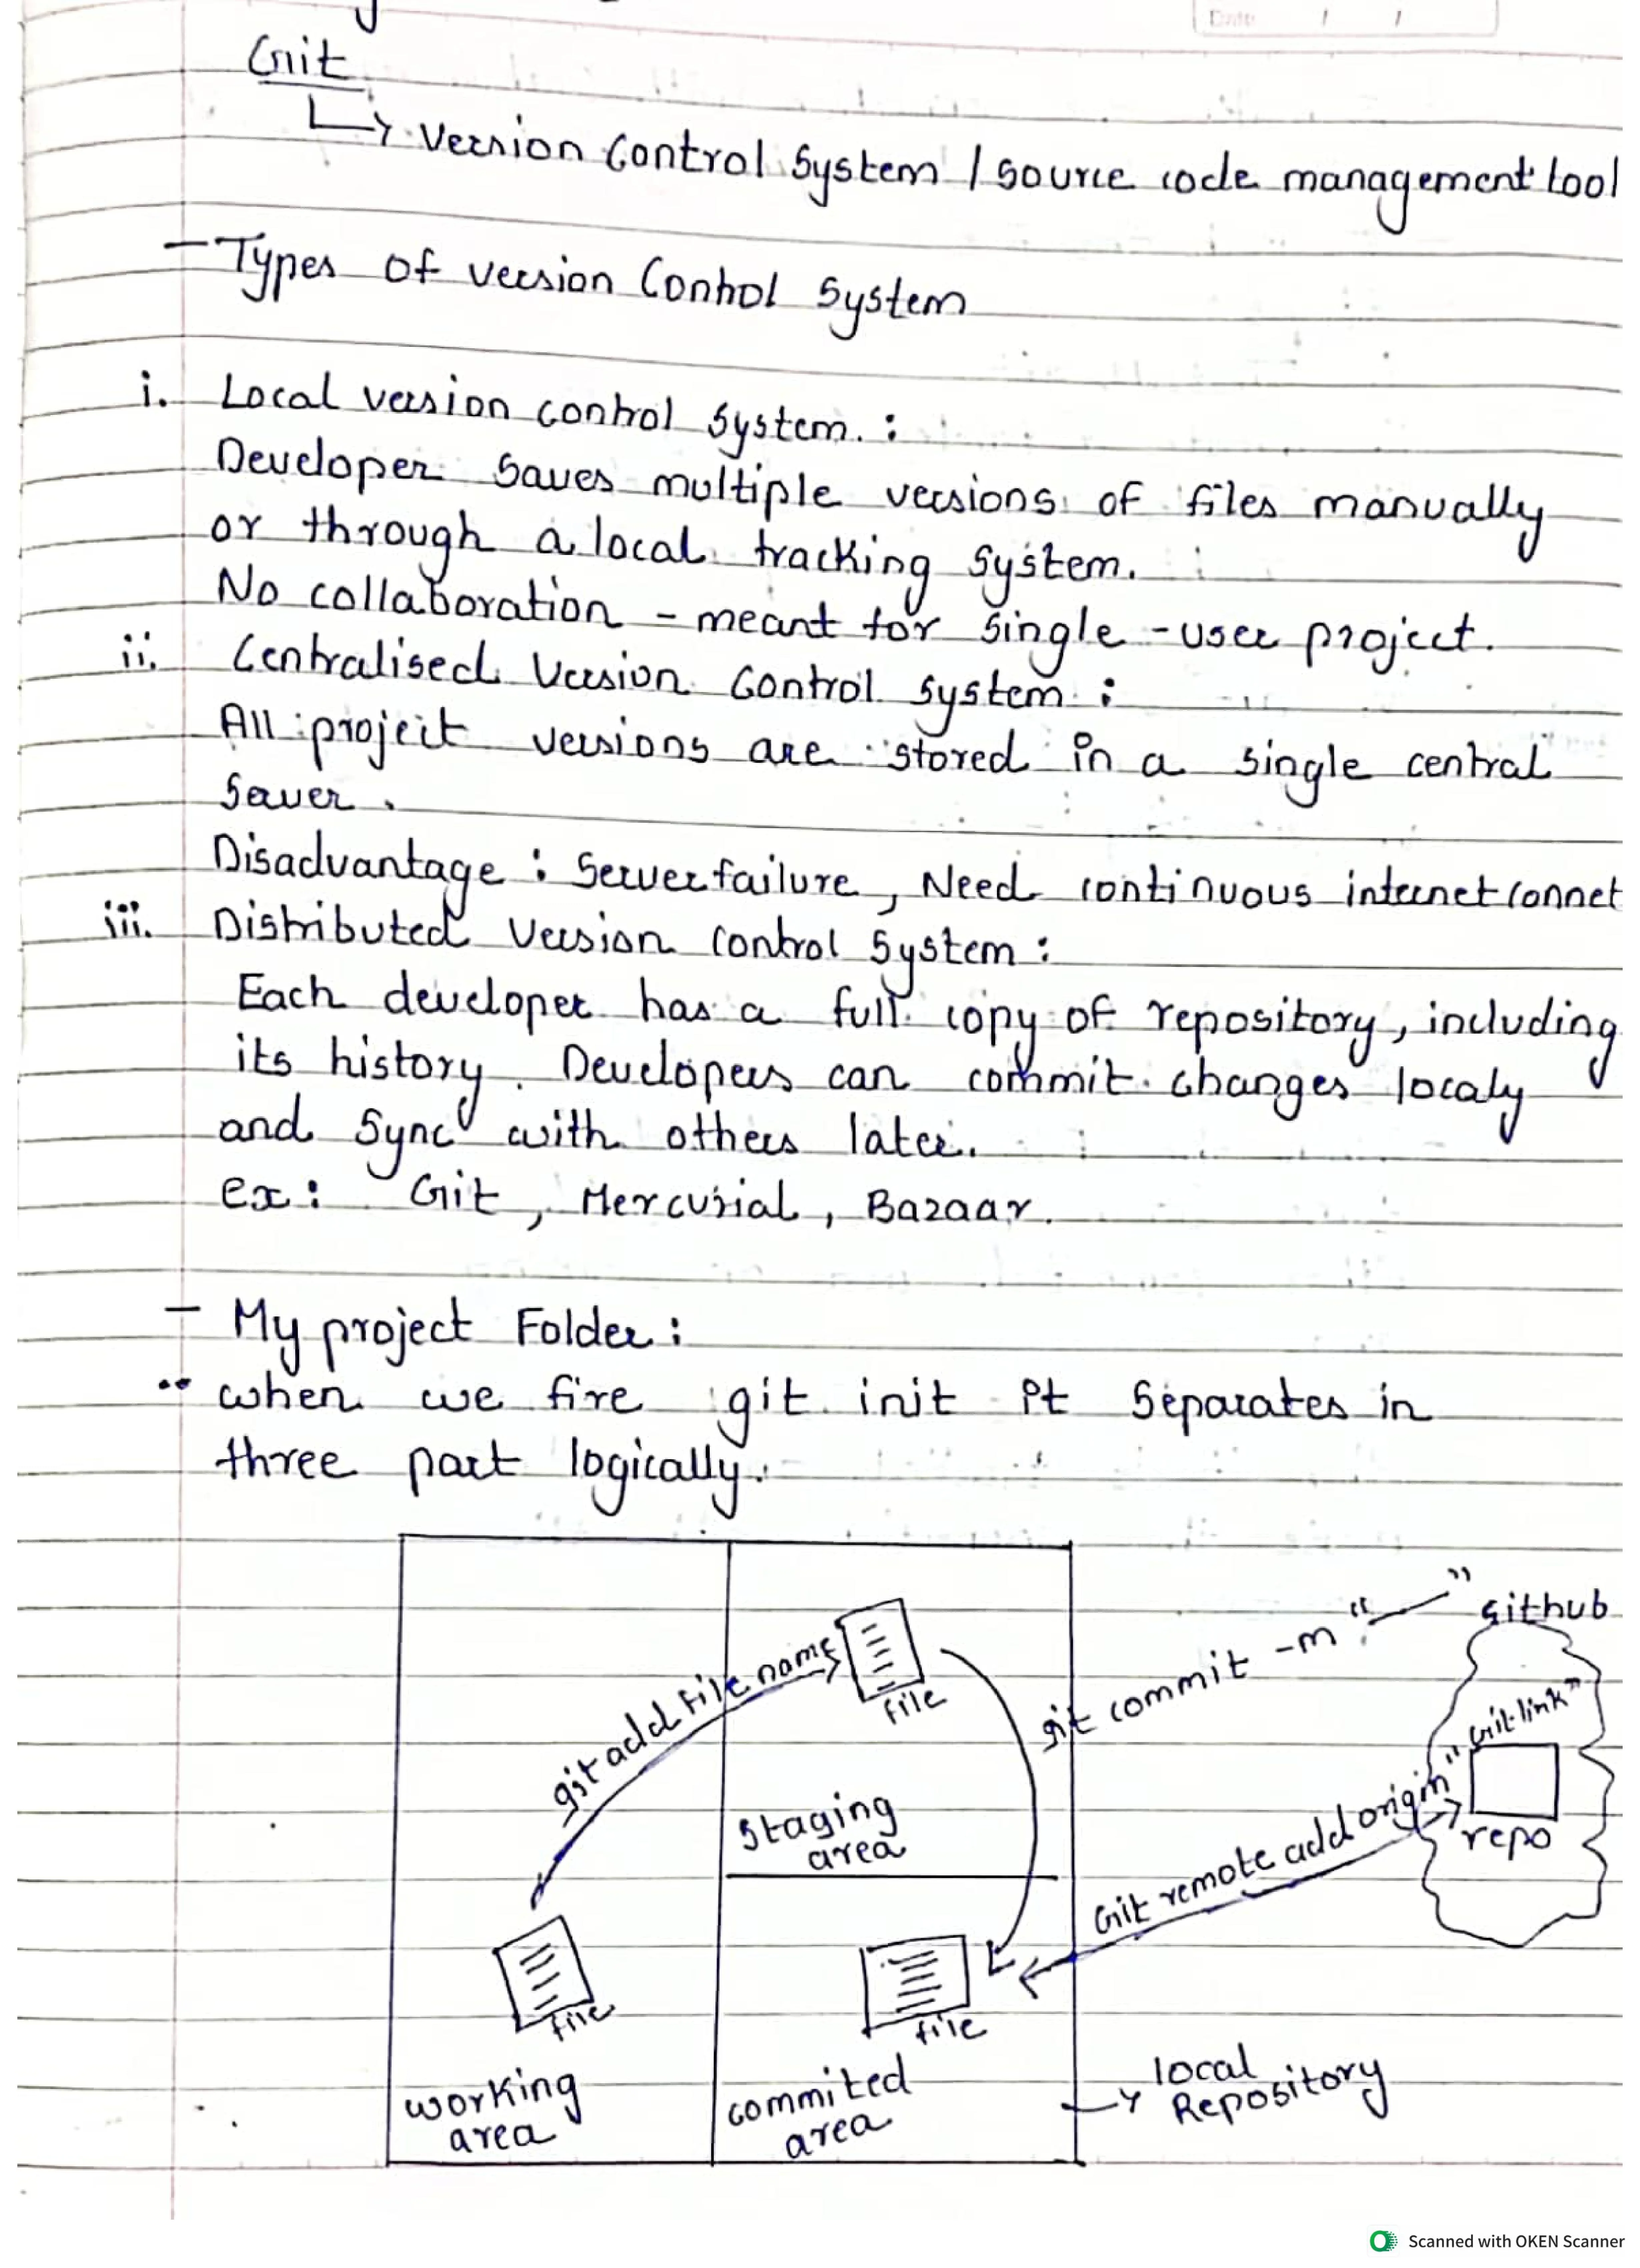 Date / /
Git
Version Control System / Source code management tool
- Types of version Control System
i. Local version control system. :
Developer saves multiple versions of files manually
or through a local tracking system.
No collaboration - meant for single - user project.
ii. Centralised Version Control system :
All project versions are stored in a single central
Server.
Disadvantage : Server failure, Need continuous internet connet
iii. Distributed Version control System :
Each developer has a full copy of repository, including
its history. Developers can commit changes localy
and Sync with others later.
ex: Git, Mercurial, Bazaar.
- My project Folder :
when we fire git init it Separates in
three part logically.
git add file name
file
git commit -m “ — ”
Github
"Git link"
repo
Git remote add origin"
Staging
area
file
file
working
area
commited
area
local
Repository
Scanned with OKEN Scanner